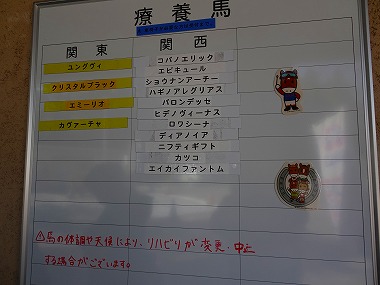 療養馬
関東
関西
ユングヴィ
クリスタルブラック
エミーリオ
カヴァーチャ
コパノエリック
エピキュール
ショウナンアーチー
ハギノアレグリアス
バロンデッセ
ヒデノヴィーナス
ロワシーナ
ディアノイア
ニフティギフト
カツコ
エイカイファントム
⚠馬の体調や天候により、リハビリが変更・中止
する場合がございます。